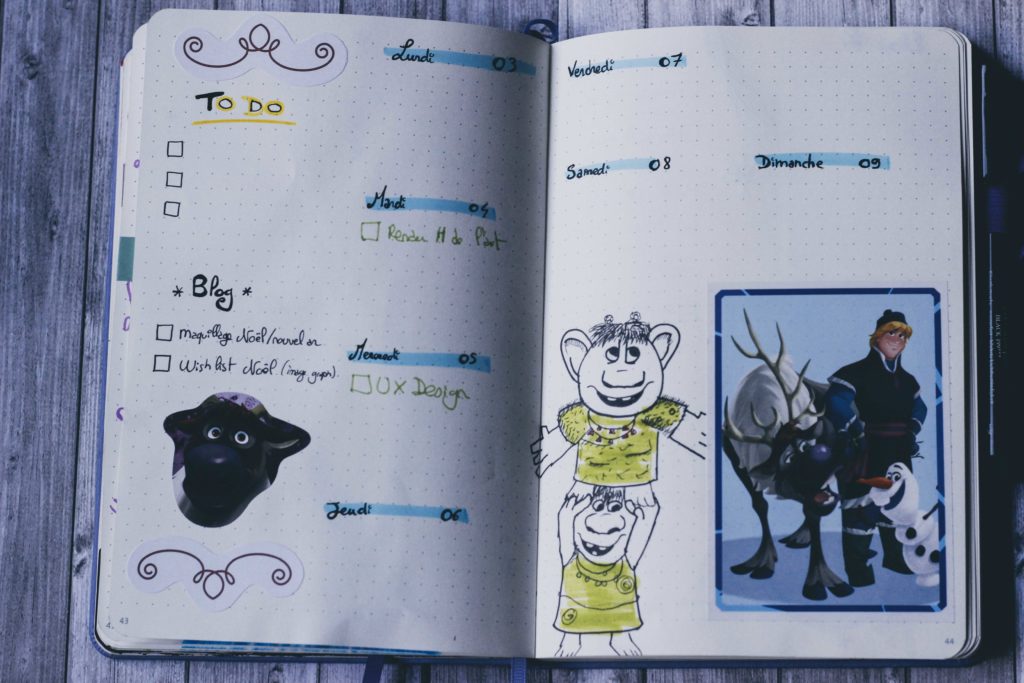 TO DO
* Blog *
maquillage Noël/nouvel an
Wish list Noël (image graph).
Lundi 03
Mardi 04
Rendu H de l'art
Mercredi 05
UX Design
Jeudi 06
43
Vendredi 07
Samedi 08
Dimanche 09
44